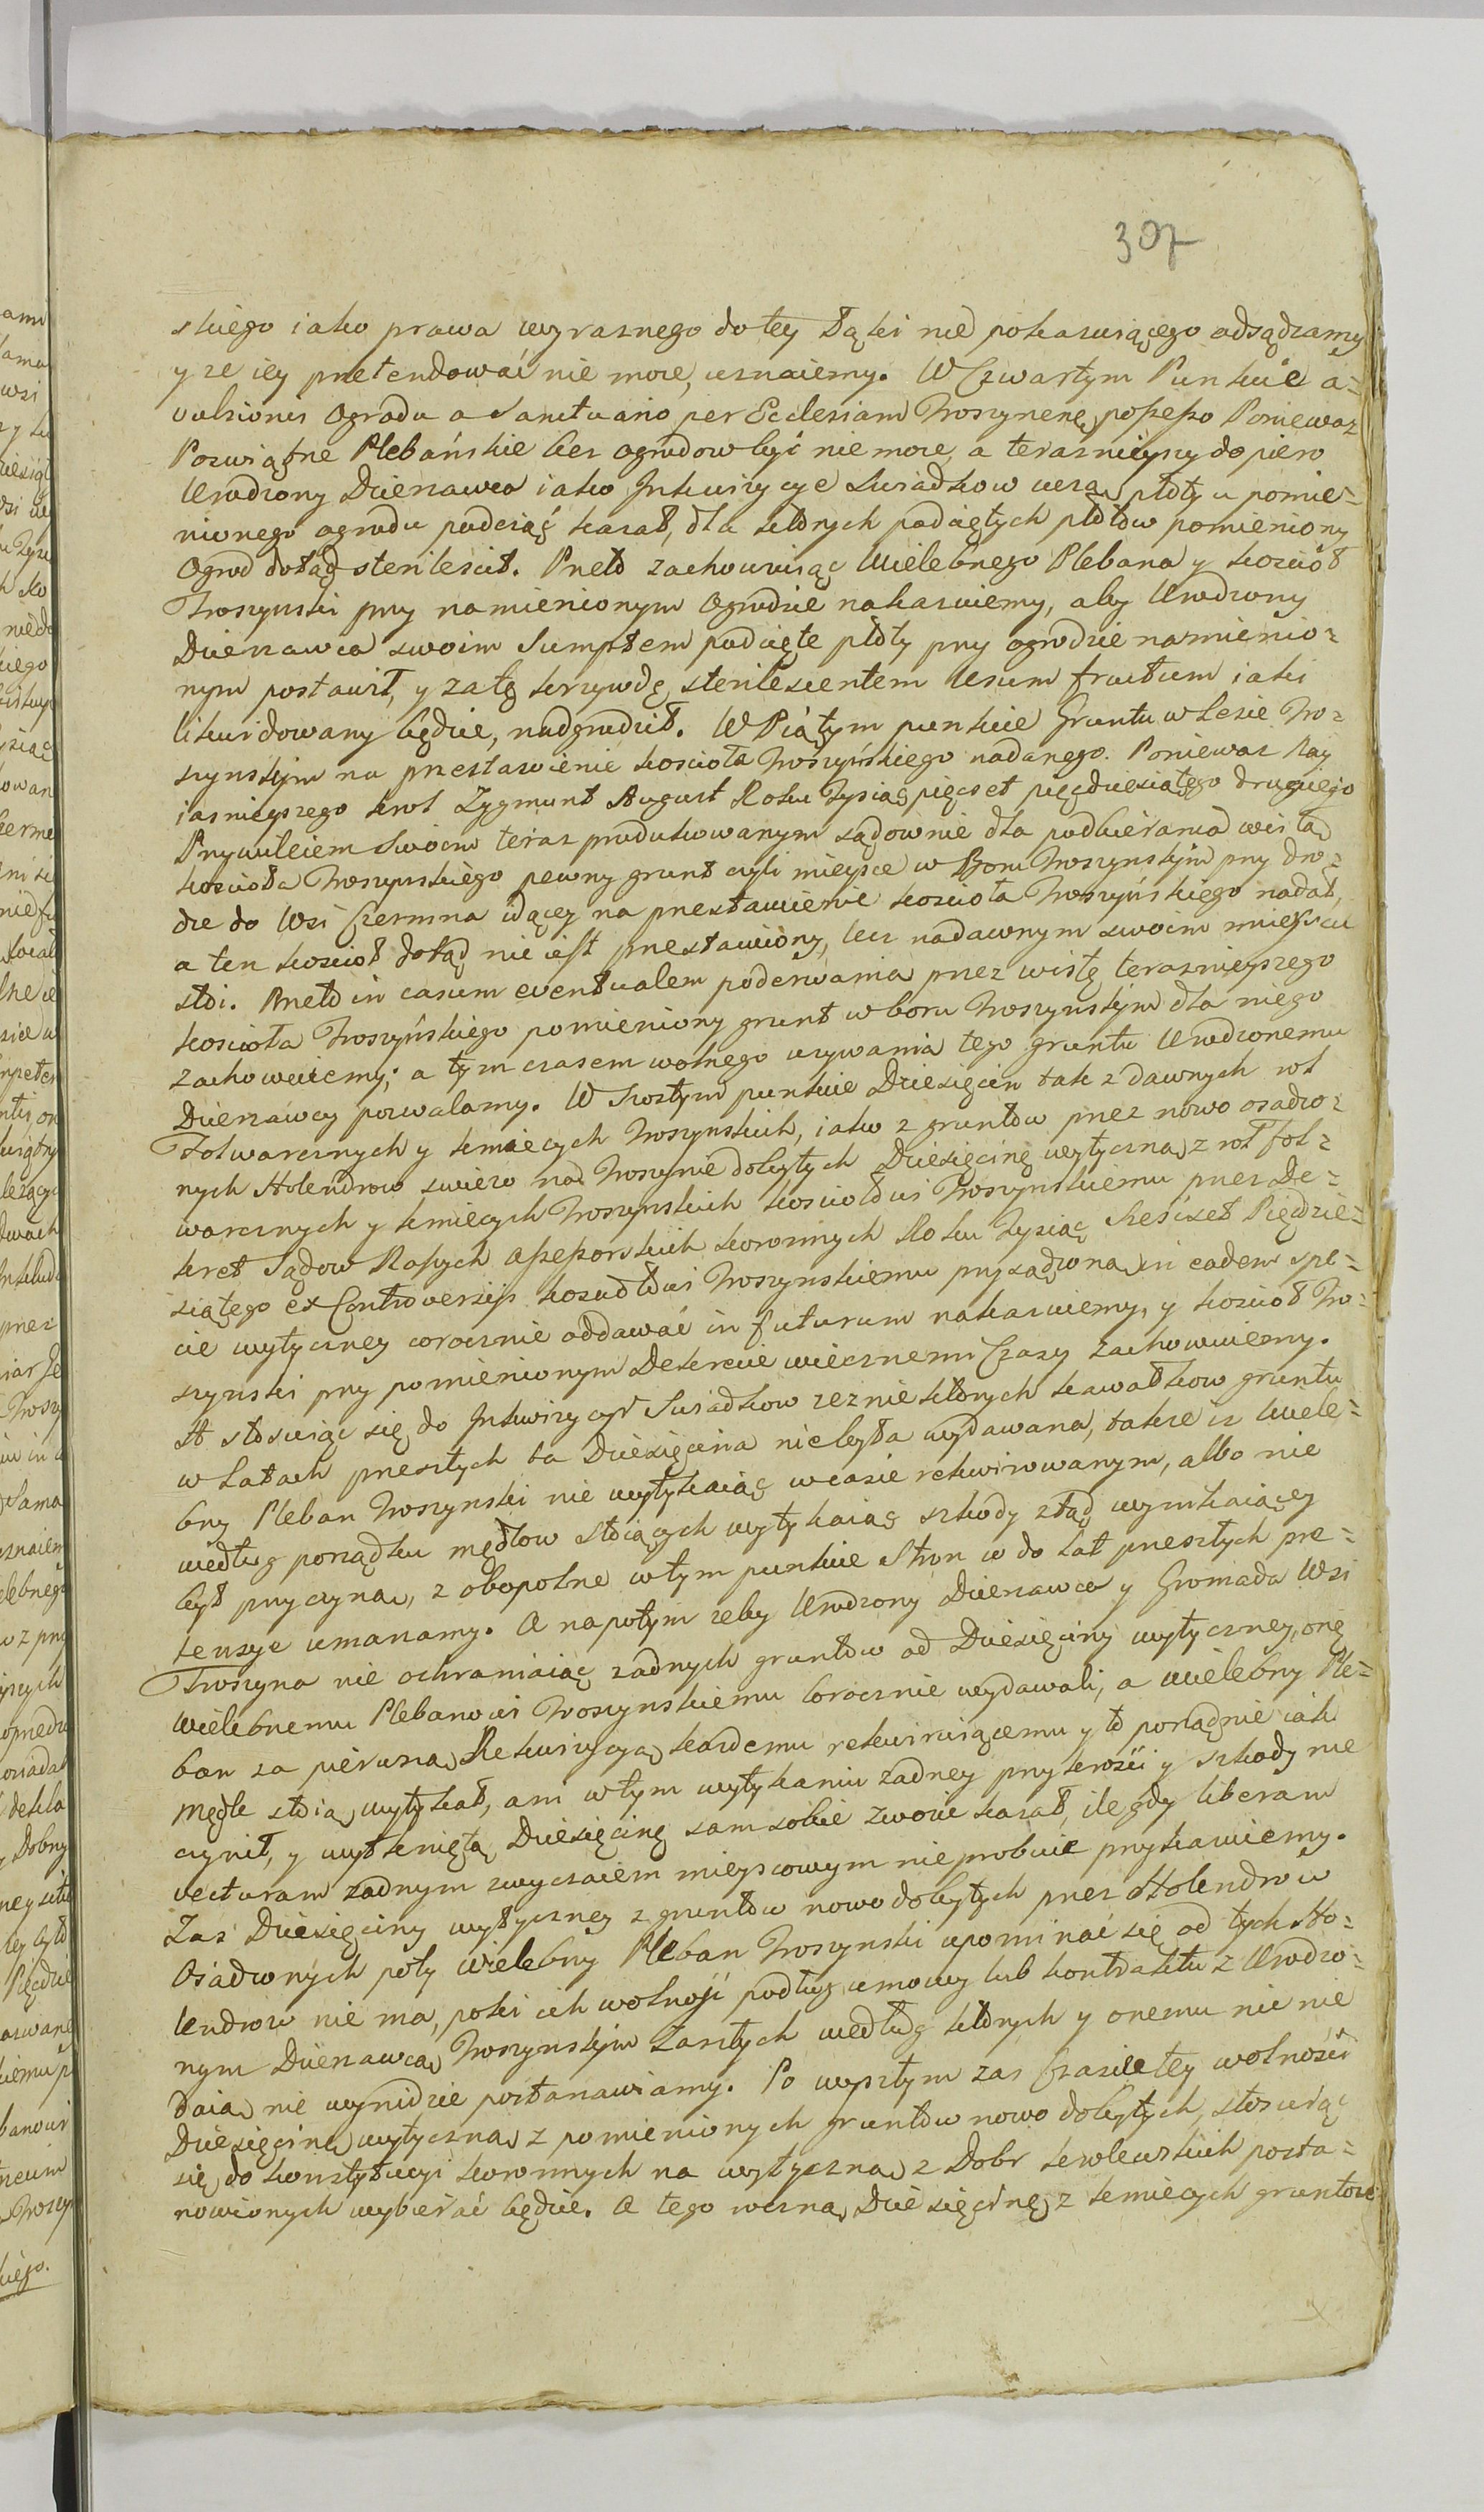 307
skiego iako prawa wyraznego do tey Łąki nie pokazuiącego odsądzamy
y ze iey pretendować nie może, uznaiemy. W Czwartym Punkcie a=
vulsionis Ogrodu a Sanctuario per Ecclesiam Troszynenę possesso Ponieważ
Poswiątne Plebańskie bez ogrodow być nie może, a teraznieyszy dopiero
Urodzony Dzierzawca iako Inkwizycye Swiadkow uczą płoty u pomie=
nionego ogrodu podciąć kazał, dla ktorych podciętych płotow pomieniony
Ogrod dotąd sterilescit. Przeto zachowuiąc Wielebnego Plebana y kosciół
Troszynski przy namienionym Ogrodzie nakazuiemy, aby Urodzony
Dzierzawca swoim Sumptem podcięte płoty przy ogrodzie namienio=
nym postawił, y za tę krzywdę sterilescentem Usum fructum iaki
likwidowany będzie, nadgrodził. W Piątym punkcie Gruntu w Lesie Tro=
szynskim na przestawienie kościoła Troszyńskiego nadanego. Ponieważ Nay
iasnieyszego krol Zygmunt August Roku Tysiąc pięcset pięcdziesiątego drugiego
Przywileiem Swoim teraz produkowanym sądownie dla podbierania wisłą
kościoła Troszynskiego pewny grunt czyli mieysce w Boru Troszynskim przy dro=
dze do Wsi Czermna idącey na przestawienie kościoła Troszyńskiego nadał,
a ten kosciół dotąd nie iest przestawiony, lecz na dawnym swoim mieyscu
stoi. Przeto in casum eventualem poderwania przez wisłę teraznieyszego
kościoła Troszyńskiego pomieniony grunt w boru Troszynskim dla niego
zachowuiemy; a tym czasem wolnego uzywania tego gruntu Urodzonemu
Dzierzawcy pozwalamy. W Szostym punkcie Dziesięcin tak z dawnych rol
Folwarcznych y kmiecych Troszynskich, iako z gruntow przez nowo osadzo=
nych Holendrow swiezo na Troszynie dobytych Dziesięcinę wytyczną z rol fol=
warcznych y kmiecych Troszynskich kosciołowi Troszynskiemu przez De=
kret Sądow Naszych Assessorskich koronnych Roku Tysiąc Sześćset Pięcdzie=
siątego ex Controversijs kosciołowi Troszynskiemu przysądzoną in eadem spe=
cie wytyczney corocznie oddawać in futurum nakazuiemy, y kosciół Tro=
szynski przy pomienionym Dekrecie wiecznemi Czasy zachowuiemy.
A stosuiąc się do Inkwizycyi Swiadkow ze z niektórych kawałkow gruntu
w Latach przeszłych ta Dziesięcina nie była wydawana, także iz Wiele=
bny Pleban Troszynski nie wytykaiąc w czasie rekwirowanym, albo nie
według porządku mędlow stoiących wytykaiąc szkody ztąd wynikaiącey
był przyczyną, z obopolne w tym punkcie Stron w do Lat przeszłych pre=
tensye umarzamy. A napotym zeby Urodzony Dzierzawca y Gromada Wsi
Troszyna nie ochraniaiąc zadnych gruntow od Dziesięciny wytyczney, onę
Wielebnemu Plebanowi Troszynskiemu corocznie wydawali, a wielebny Ple=
ban za pierwszą Rekwizycyą kazdemu rekwiruiącemu y to porządnie iak
Mędle stoią wytykał, ani w tym wytykaniu zadney przykrości y szkody nie
czynił, y wytknięta Dziesięcinę sam sobie zwozic kazał, ile gdy liberam
vecturam zadnym zwyczaiem mieyscowym nie probuie przykazuiemy.
Zaś Dziesięciny wytyczney z gruntow nowo dobytych przez Holendrow
Osiadzonych poty Wielebny Pleban Troszynski upominać się od tych Ho=
lendrow nie ma, poki ich wolność podług umowy lub kontraktu z Urodzo=
nym Dzierzawcą Troszynskim zaszłych według ktorych y onemu nic nie
daią nie wynidzie postanawiamy. Po wyszłym zas Czasie tey wolności
Dziesięcinę wytyczną z pomienionych gruntow nowo dobytych, stosuiąc
się do konstytucyi koronnych na wytyczną z Dobr krolewskich posta=
nowionych wybierać będzie. A tego roczną Dziesięcinę z kmiecych gruntow